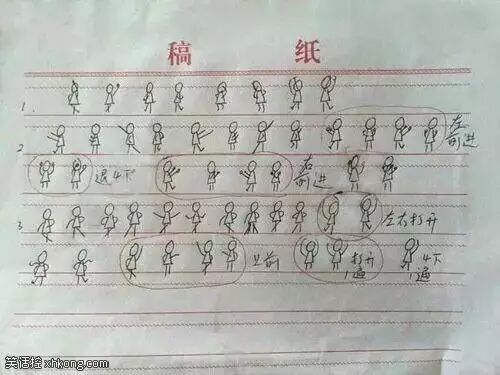 稿 纸
1.
2 左前进
退4下 右前进
3 左右打开
上前 打开1遍 4下1遍
笑话控 xhkong.com